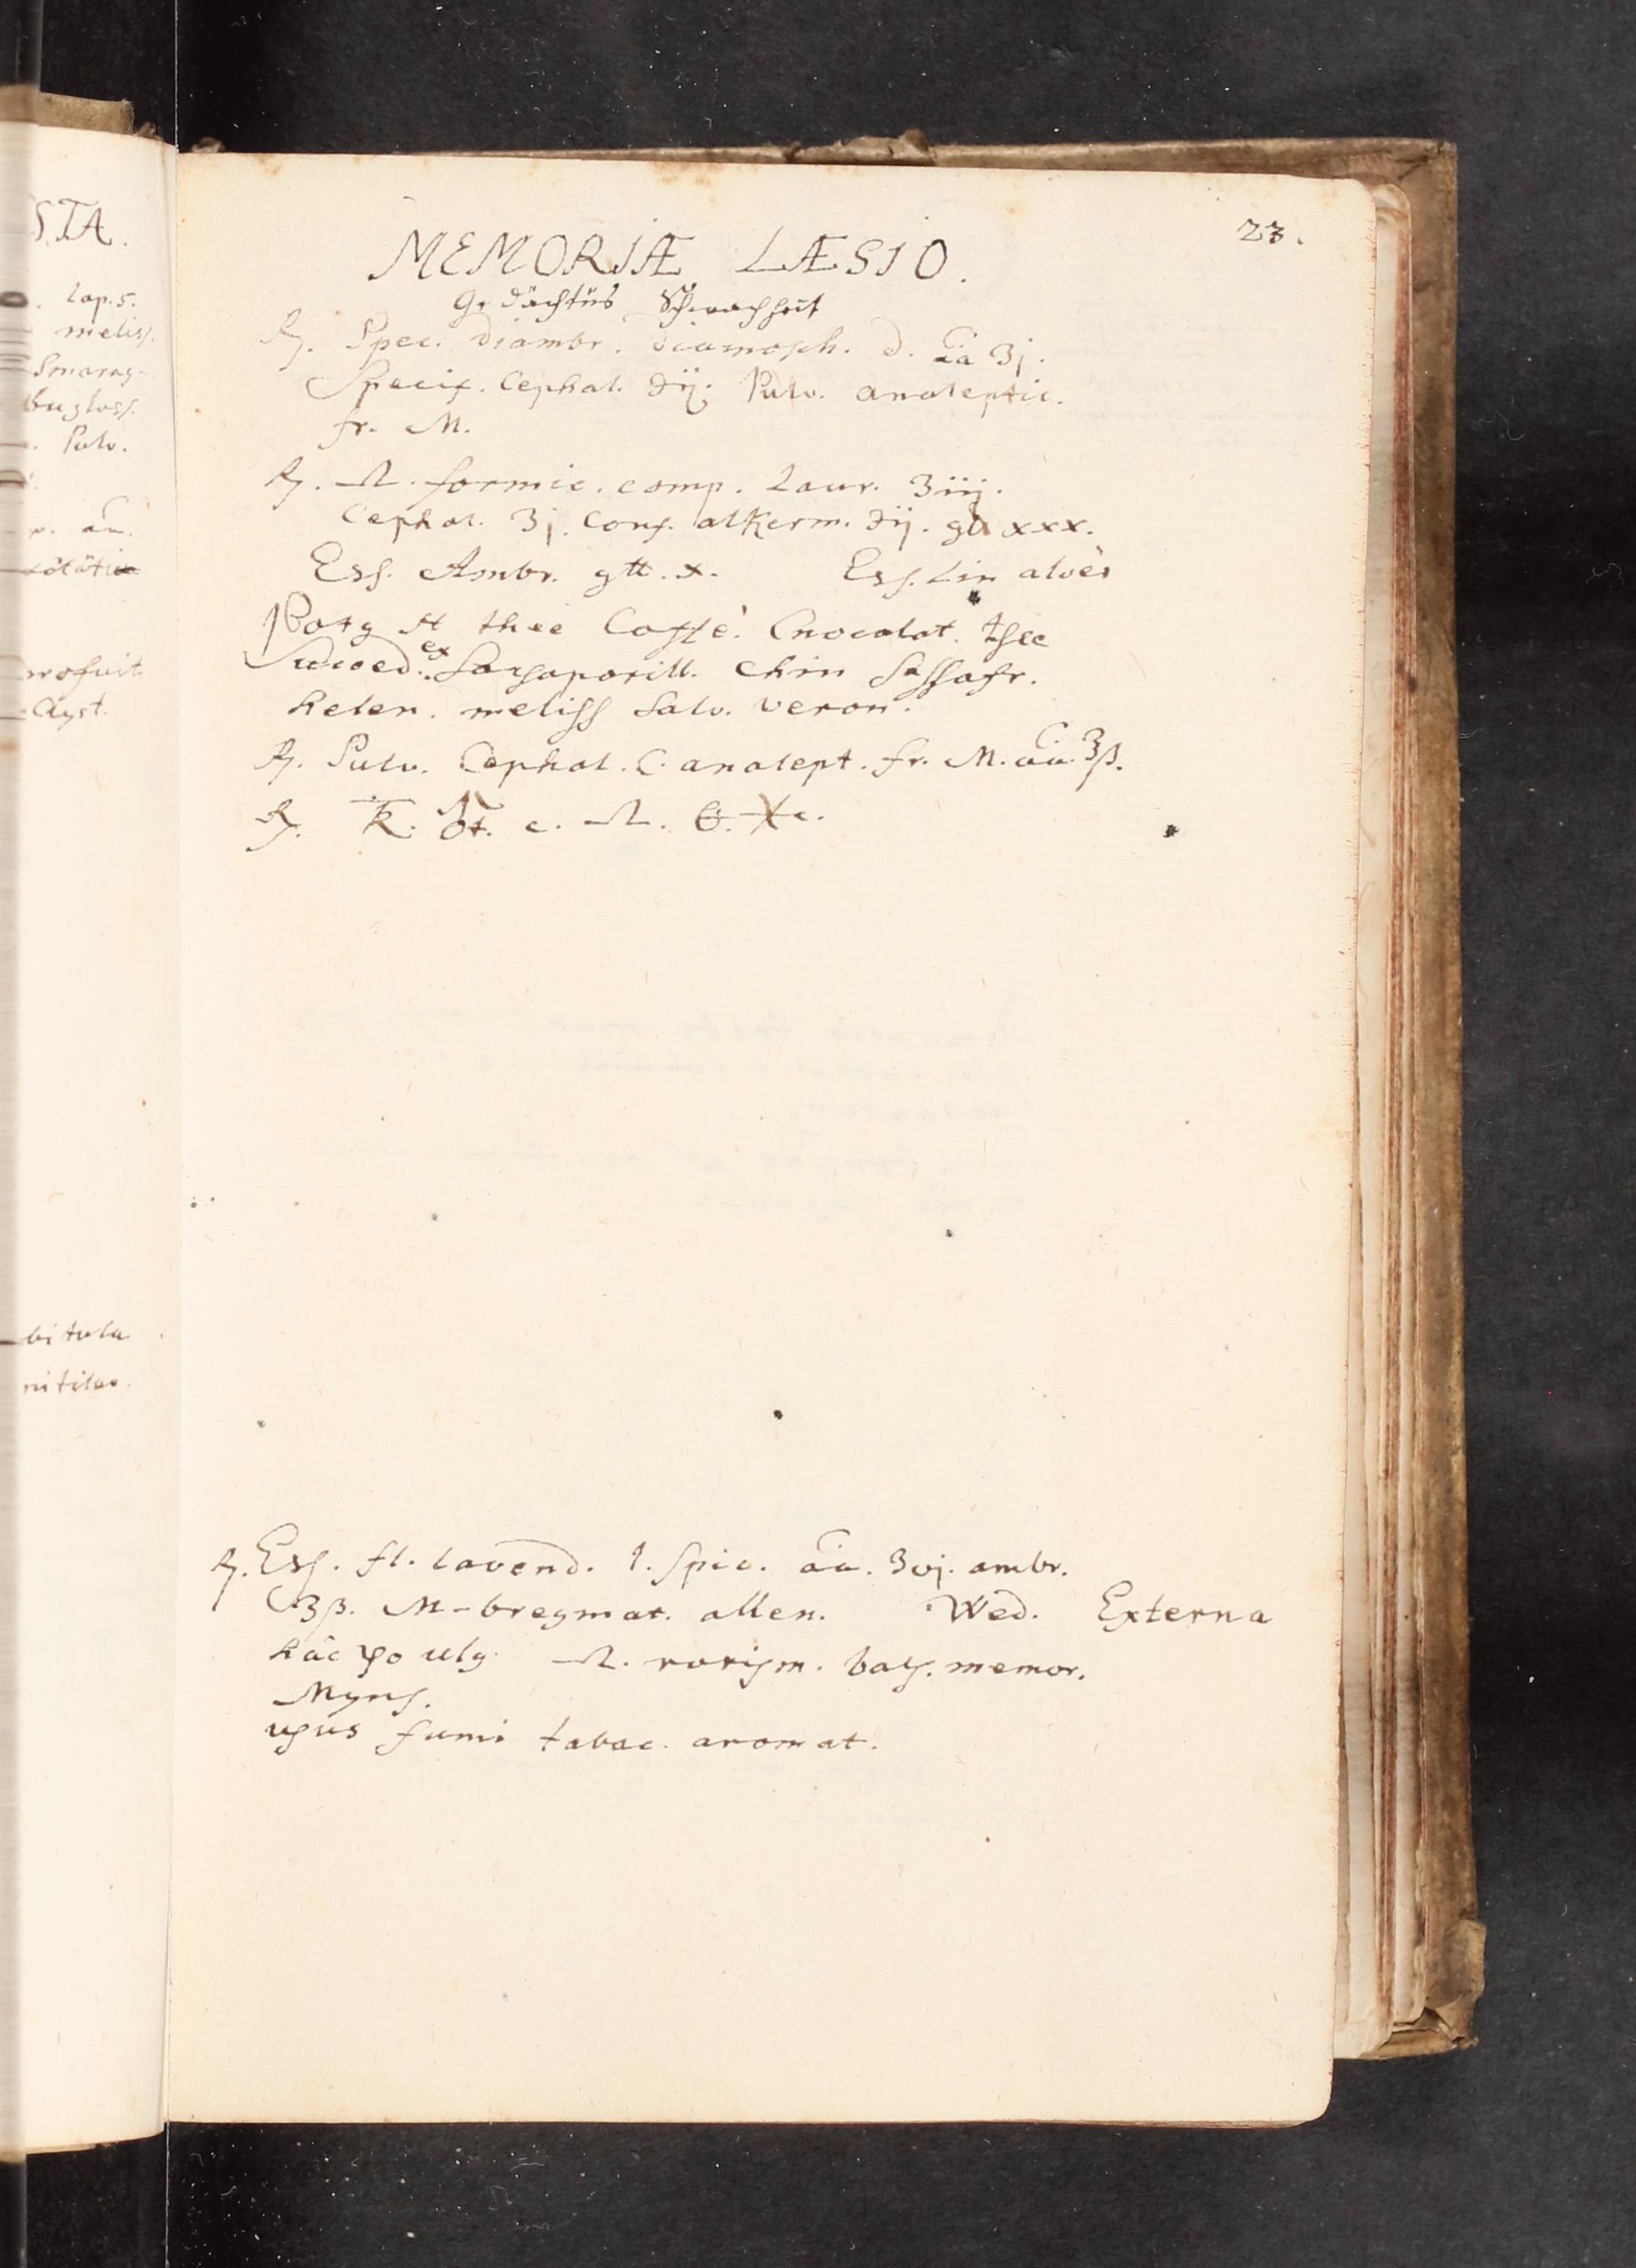 STA.
lap. s.
meliss.
Smarag-
bugloss.
Pulv.
p. ãa.
profuit
Clyst.
bitula
23.
MEMORIÆ LÆSIO.
Gedächtnis Schwachheit
℞. Spec. diambr. diamosch. d. ãa ʒj.
Specif. Cephal. ℈ij. Pulv. analeptic.
fr. M.
℞. formic. comp. Laur. ʒiij.
Cephal. ʒj. Conf. alkerm. ℈ij. gtt xxx.
Ess. Ambr. gtt. x. Ess. Lin aloës
Potg st thee Caffé. Chocolat. thee
Succed. ex Sarsaparill. Chin Sassafr.
helen. meliss Salv. veron.
℞. Pulv. Cephal. C. analept. fr. M. ãa. ʒß.
℞.
℞. Ess. fl. lavend. l. spic. ãa. ʒvj. ambr.
ʒß. M-bregmat. allen. Wed. Externa
hâc rorism. bals. memor.
Myns.
usus fumi tabac. aromat.